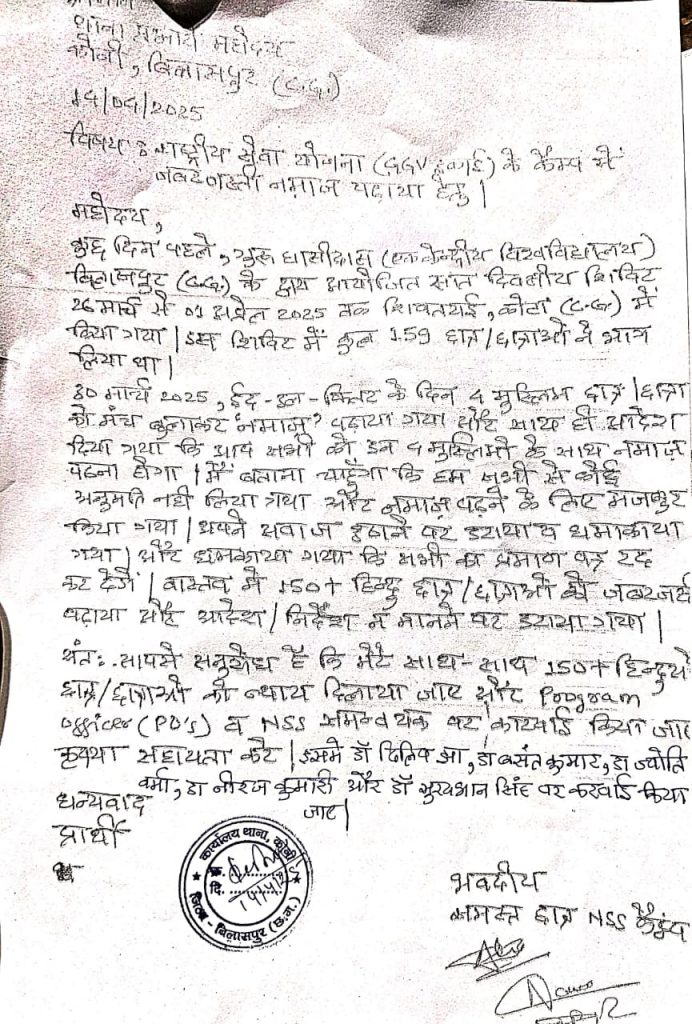 थाना प्रभारी महोदय
कोनी, बिलासपुर (C.G.)
14/04/2025
विषय : राष्ट्रीय सेवा योजना (GGV इकाई) के कैम्प में
जबरदस्ती नमाज पढ़ाया हेतु।
महोदय,
कुछ दिन पहले, गुरु घासीदास (एक केन्द्रीय विश्वविद्यालय)
बिलासपुर (C.G.) के द्वारा आयोजित सात दिवसीय शिविर
26 मार्च से 01 अप्रैल 2025 तक शिवतराई, कोटा (C.G.) में
किया गया। इस शिविर में कुल 159 छात्र/छात्राओं ने भाग
लिया था।
30 मार्च 2025, ईद-उल-फितर के दिन 4 मुस्लिम छात्र/छात्रा
को मंच बुलाकर नमाज पढ़ाया गया और साथ ही आदेश
दिया गया कि आप सभी को इन 4 मुस्लिमों के साथ नमाज़
पढ़ना होगा। मैं बताना चाहूँगा कि हम सभी से कोई
अनुमति नहीं लिया गया और नमाज़ पढ़ने के लिए मजबूर
किया गया। अपने आवाज उठाने पर डराया व धमकाया
गया। और धमकाया गया कि सभी का प्रमाण पत्र रद्द
कर देगें। वास्तव में 150+ हिन्दू छात्र/छात्राओं को
पढ़ाया और आदेश/निर्देश न मानने पर डराया गया।
अंत: आपसे अनुरोध है कि मेरे साथ-साथ 150+ हिन्दुये
छात्र/छात्राओं को न्याय दिलाया जाए और Program
Officer (PO's) व NSS समन्वयक पर कारवाई किया जाए
कृपया सहायता करें। इसमे डॉ दिलीप झा, डा बसंत कुमार, डा ज्योति
वर्मा, डा नीरज कुमारी और डॉ सूर्यभान सिंह पर करवाई किया
जाए।
धन्यवाद
प्रार्थी
कार्यालय थाना, कोनी
क्र.
दि. 14/4/25
जिला - बिलासपुर (छ.ग.)
भवदीय
समस्त छात्र NSS कैंप